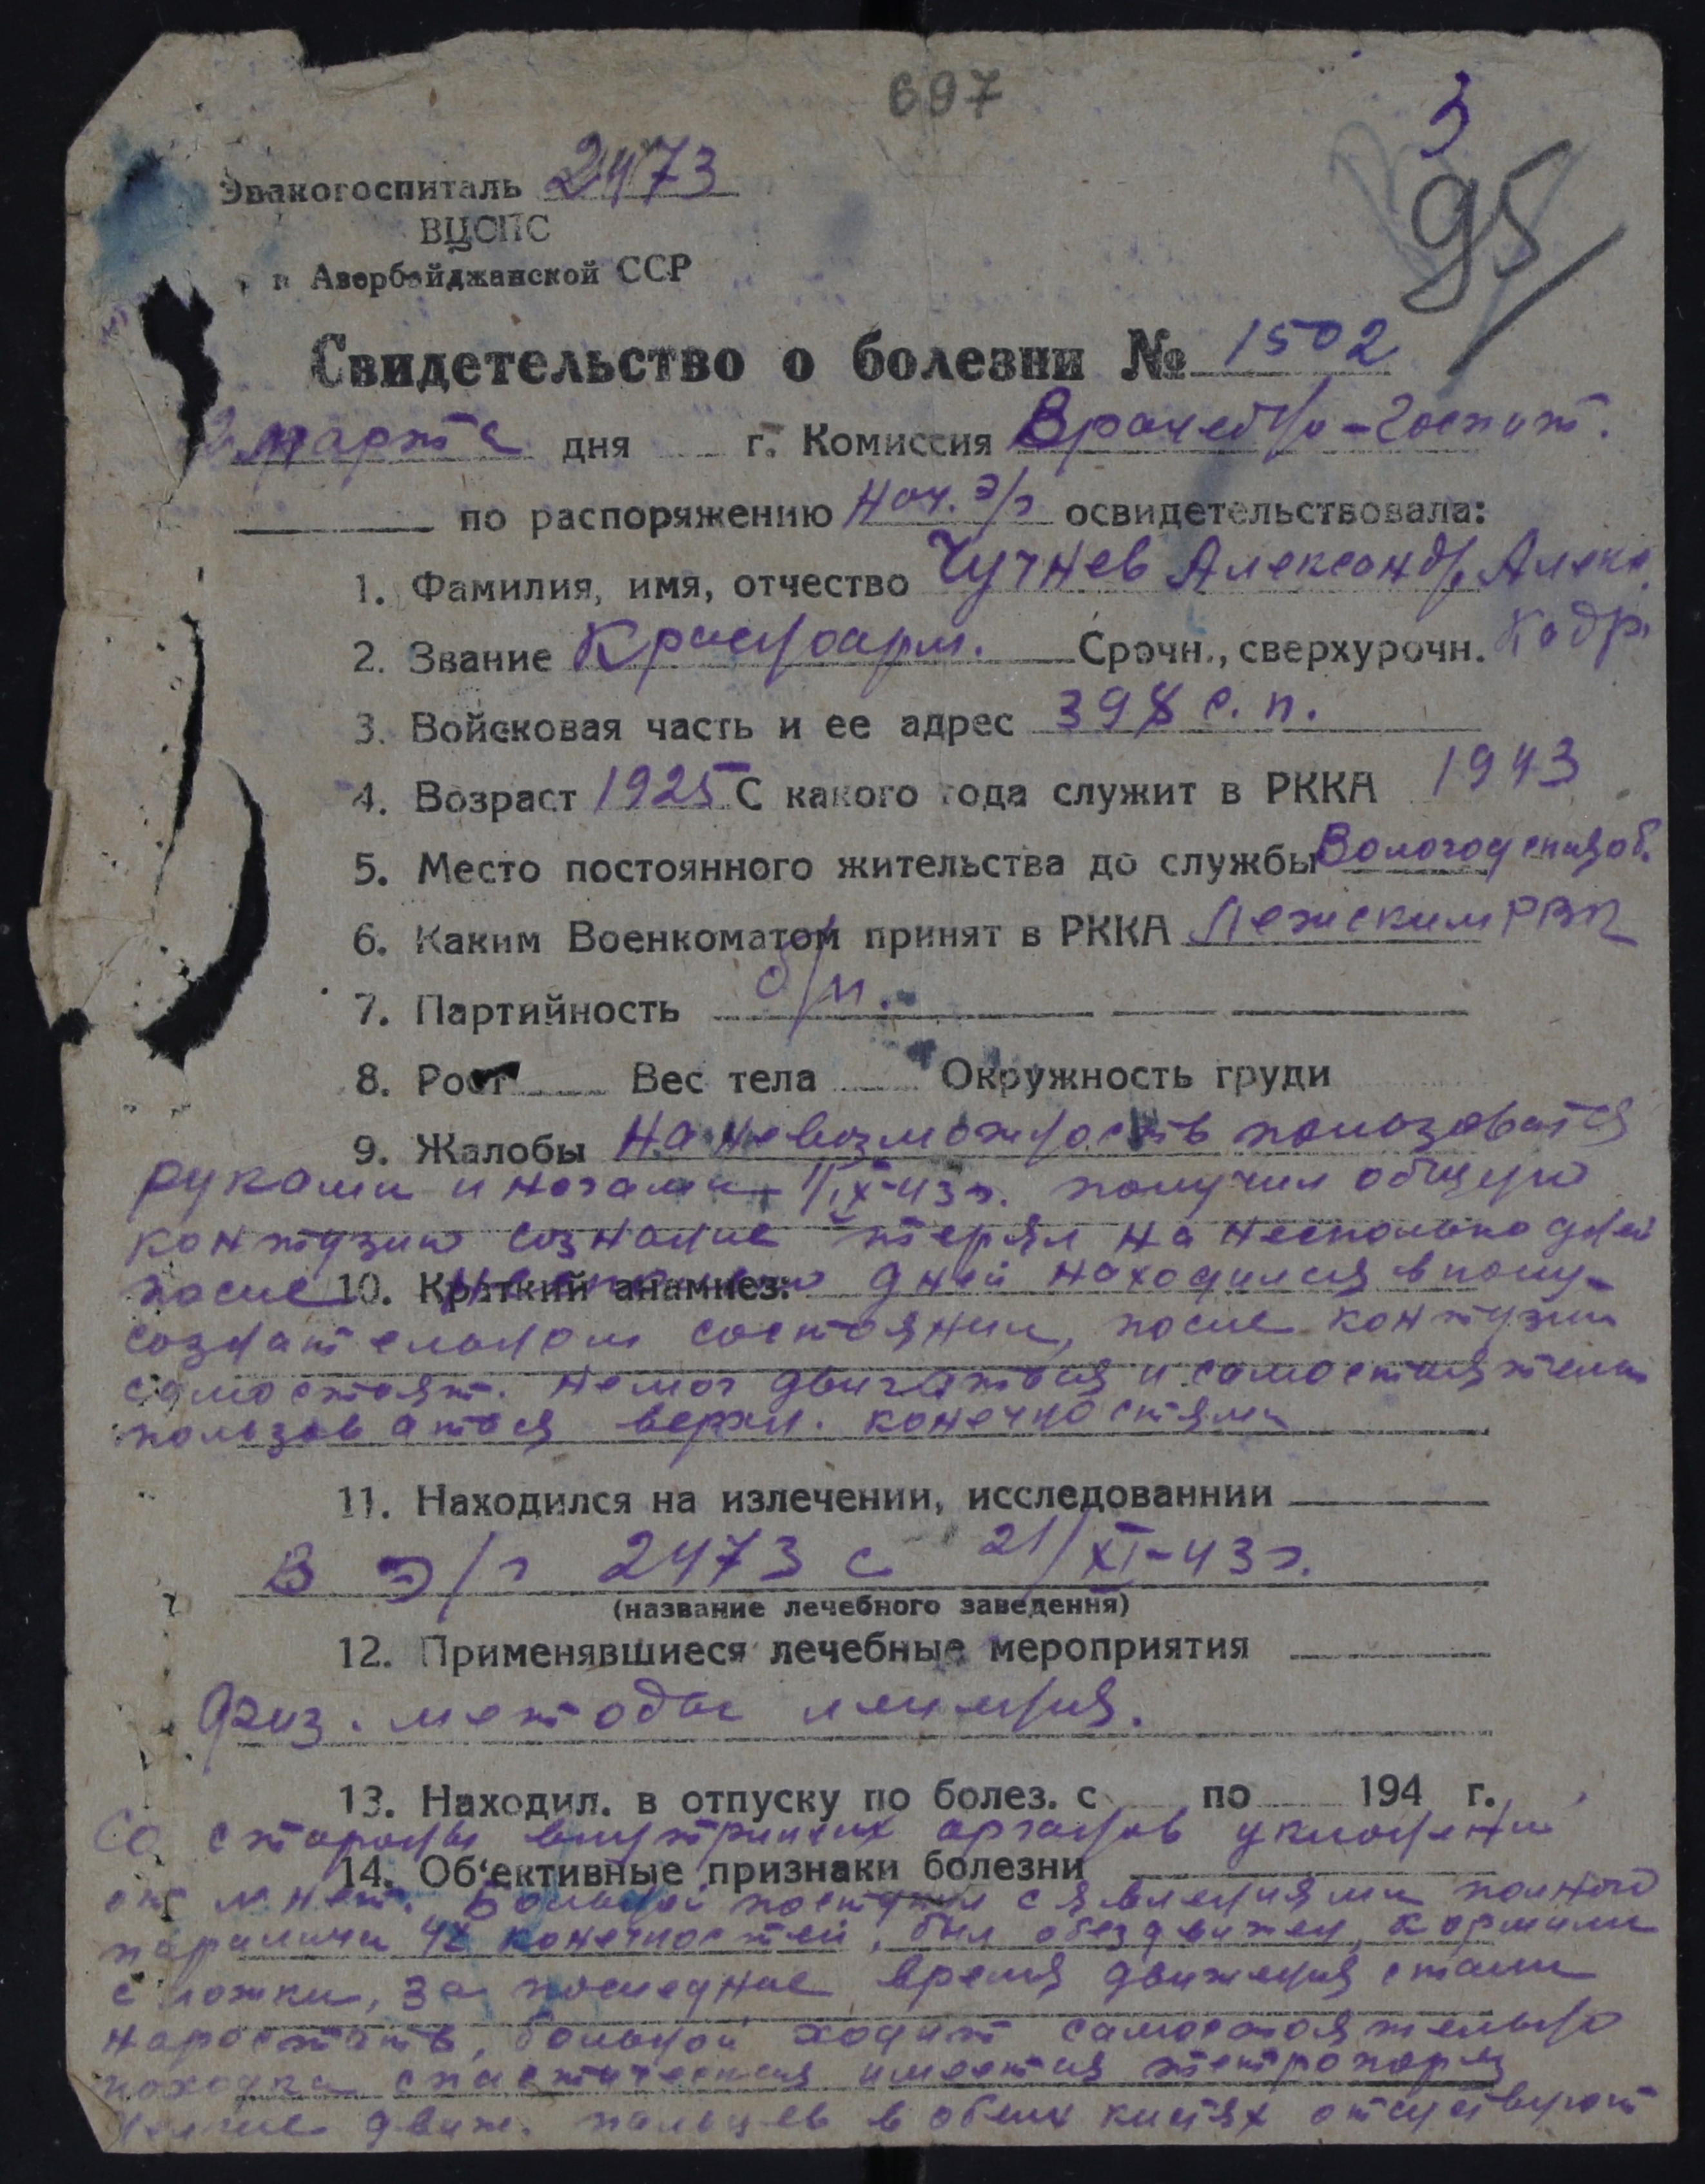 697
3
95
Эвакогоспиталь 2473
ВЦСПС
в Азербайджанской ССР
Свидетельство о болезни № 1502
марта дня г. Комиссия Врачебно-госпит.
по распоряжению Нач. э/г освидетельствовала:
1. Фамилия, имя, отчество Чучнев Александр Алекс
2. Звание Красноарм. Срочн., сверхурочн. Кадр.
3. Войсковая часть и ее адрес 398 с. п.
4. Возраст 1925 С какого года служит в РККА 1943
5. Место постоянного жительства до службы Вологодская об.
6. Каким Военкоматом принят в РККА Лежским РВК
7. Партийность б/п.
8. Рост Вес тела Окружность груди
9. Жалобы На невозможность пользоватся
руками и ногами IX-43г. получил общую
контузию сознание терял на несколько дней
после 10. Краткий анамнез: дней находился в полу-
сознательном состоянии, после контузии
самостоят. не мог двигаться и самостоятельно
пользоваться верхн. конечностями
11. Находился на излечении, исследованнии
В э/г 2473 с 21/XI-43г.
(название лечебного заведення)
12. Применявшиеся лечебные мероприятия
Физ. методы лечения.
13. Находил. в отпуску по болез. с по 194 г.
Со стороны внутренних органов уклонений
14. Об‘ективные признаки болезни
от нет. Больной поступил с явлениями полного
паралича 4х конечностей, был обездвижен, кормили
с ложки, за последние время движения стали
наростать, больной ходит самостоятельно
походка спастическая имеется тетропарез
движ. пальцев в обеих кистях отсутствуют